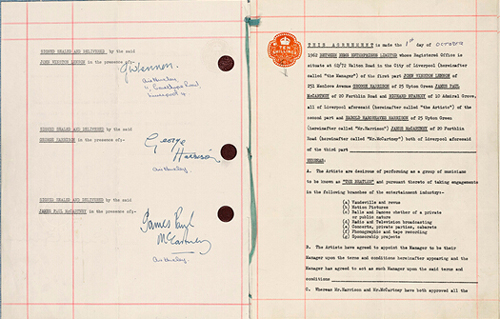 SIGNED SEALED AND DELIVERED by the said
JOHN WINSTON LENNON in the presence of:-
J W Lennon.
Liverpool
SIGNED SEALED AND DELIVERED by the said
GEORGE HARRISON in the presence of:-
George
Harrison
SIGNED SEALED AND DELIVERED by the said
JAMES PAUL McCARTNEY in the presence of:-
James Paul
McCartney
TEN
SHILLINGS
THIS AGREEMENT is made the 1st day of October
1962 BETWEEN NEMS ENTERPRISES LIMITED whose Registered Office is
situate at 12/14 Walton Road in the City of Liverpool (hereinafter
called "the Manager") of the first part JOHN WINSTON LENNON of
251 Menlove Avenue GEORGE HARRISON of 25 Upton Green JAMES PAUL
McCARTNEY of 20 Forthlin Road and RICHARD STARKEY of 10 Admiral Grove,
all of Liverpool aforesaid (hereinafter called "the Artists") of the
second part and HAROLD HARGREAVES HARRISON of 25 Upton Green
(hereinafter called "Mr.Harrison") JAMES McCARTNEY of 20 Forthlin
Road (hereinafter called "Mr.McCartney") both of Liverpool aforesaid
of the third part
WHEREAS:
A. The Artists are desirous of performing as a group of musicians
to be known as "THE BEATLES" and pursuant thereto of taking engagements
in the following branches of the entertainment industry:-
(a) Vaudeville and revue
(b) Motion Pictures
(c) Balls and Dances whether of a private
or public nature
(d) Radio and Television broadcasting
(e) Concerts, private parties, cabarets
(f) Phonographic and tape recording
(g) Sponsorship projects
B. The Artists have agreed to appoint the Manager to be their
Manager upon the terms and conditions hereinafter appearing and the
Manager has agreed to act as such Manager upon the said terms and
conditions
C. Whereas Mr.Harrison and Mr.McCartney have both approved all the